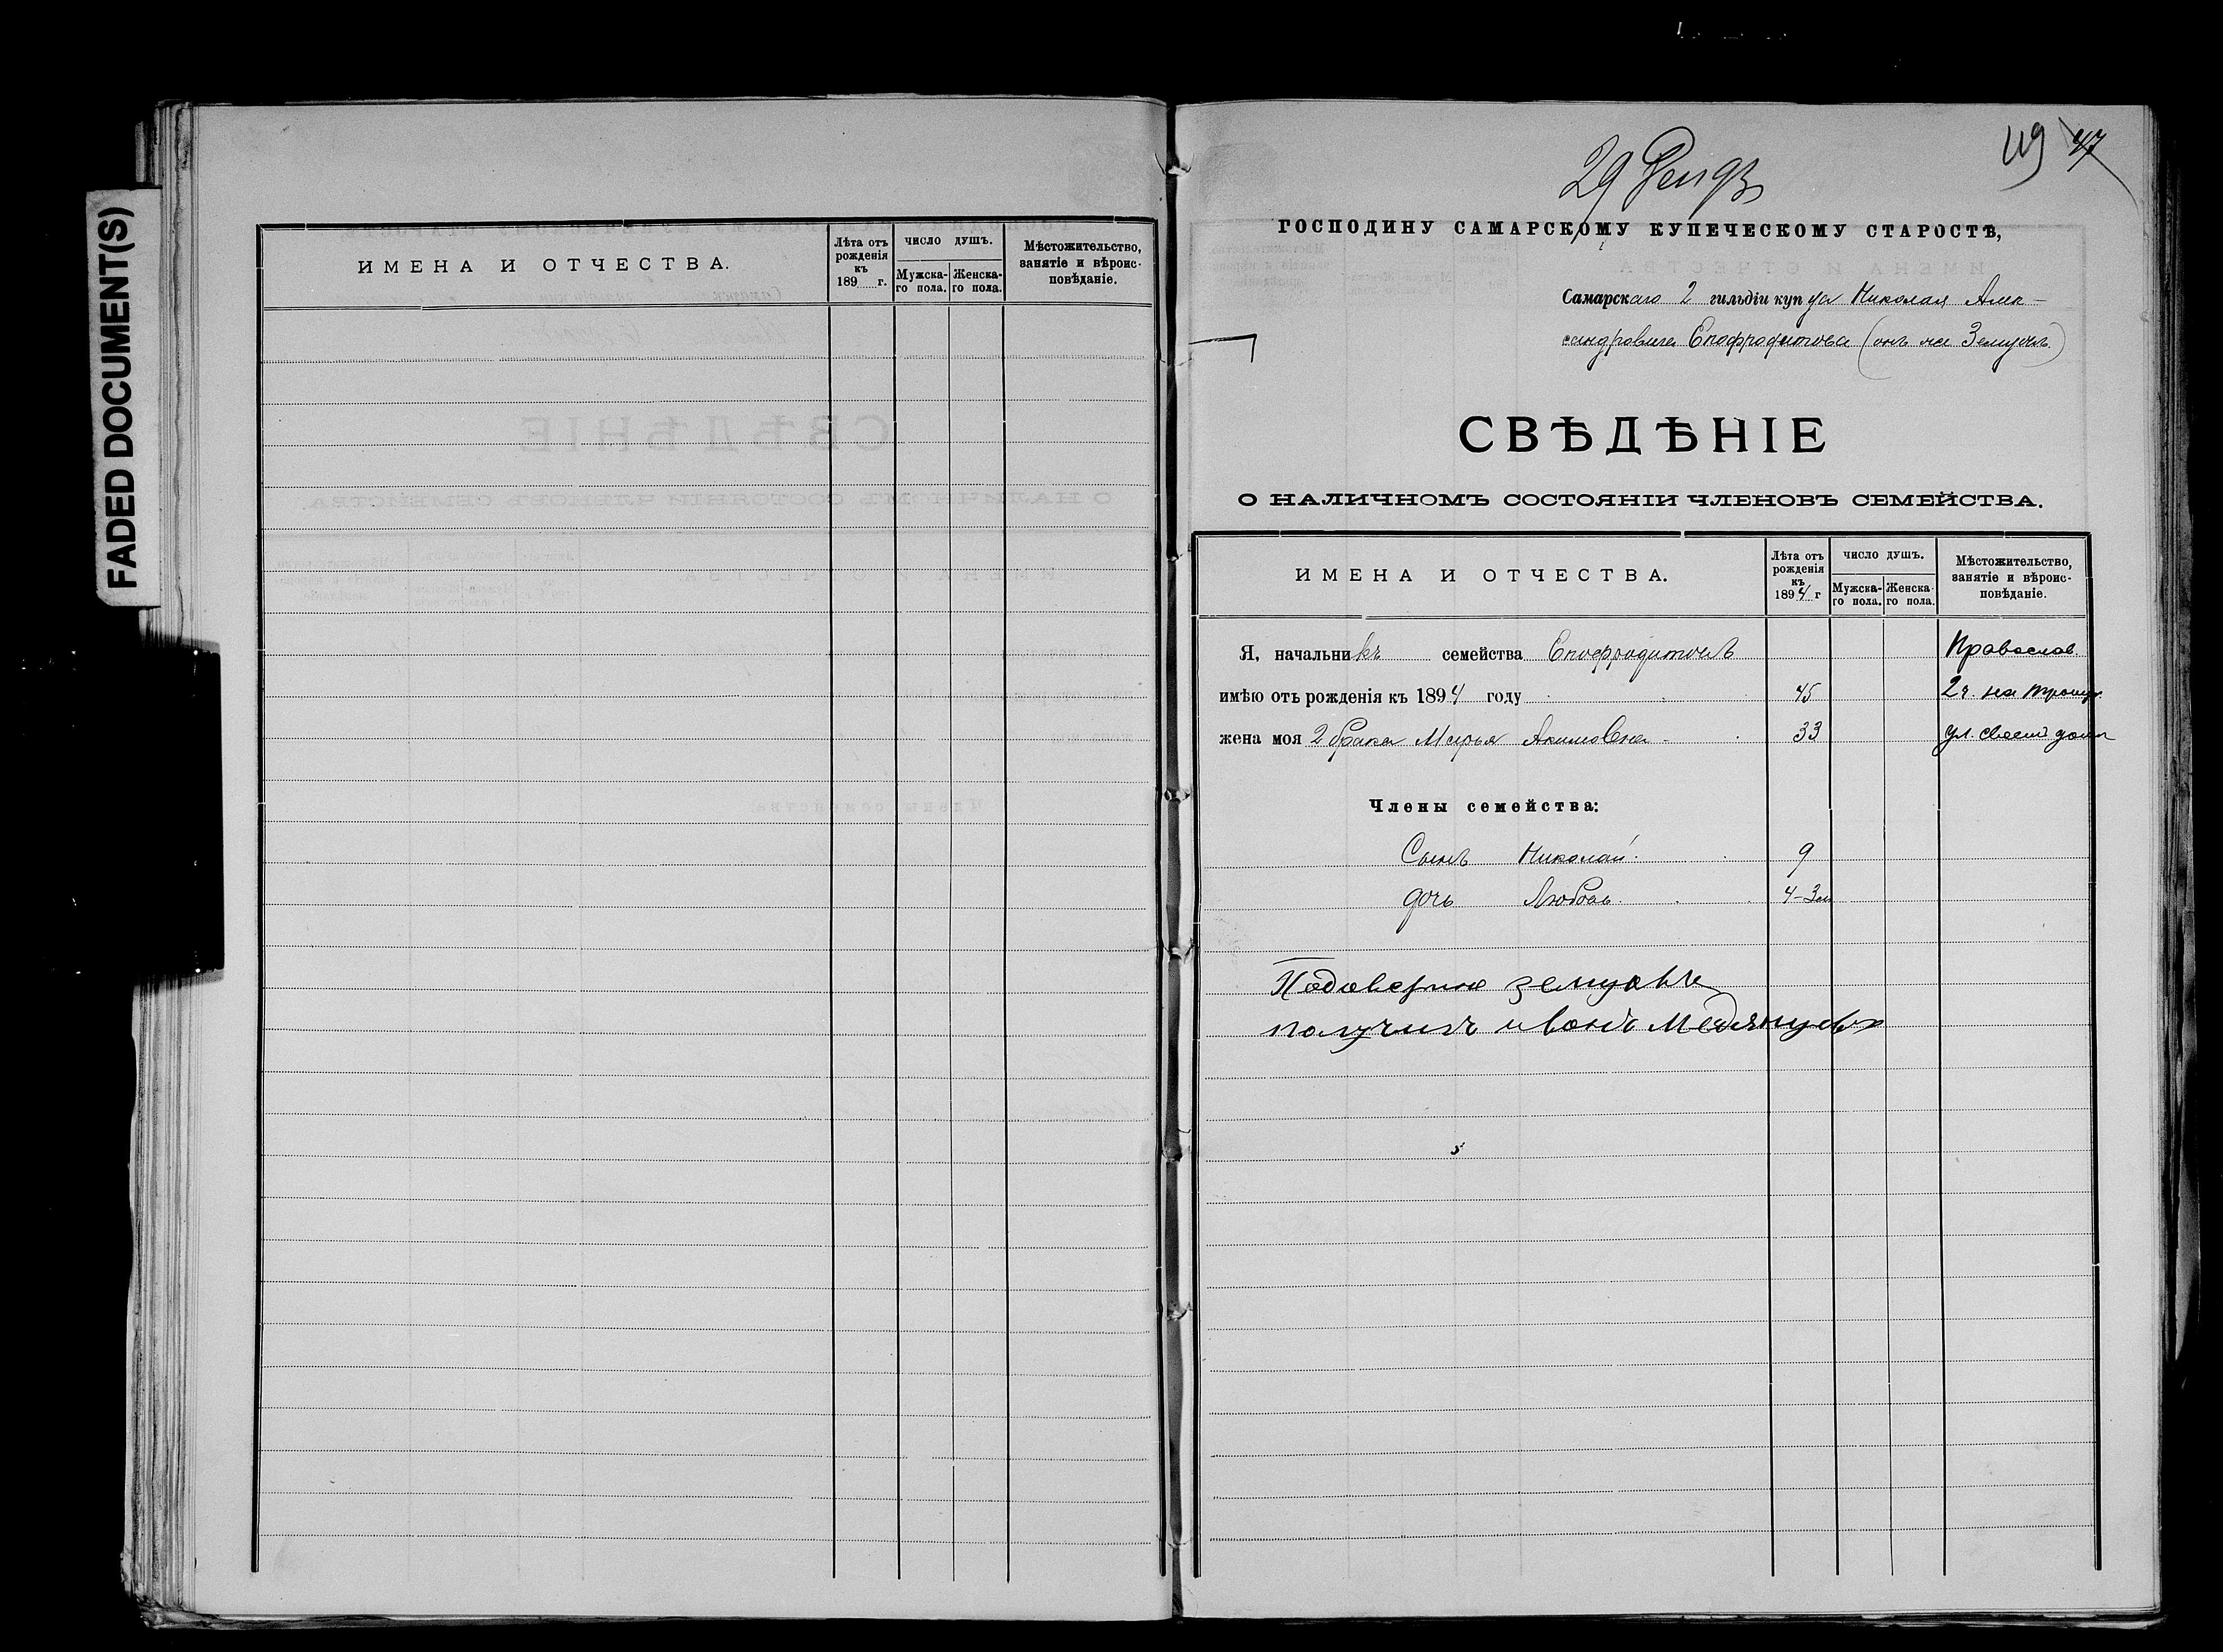 FADED DOCUMENT(S)
ИМЕНА И ОТЧЕСТВА.
Лѣта отъ рожденія къ 189 г.
ЧИСЛО ДУШЪ.
Мужска-го пола.
Женска-го пола.
Мѣстожительство, занятіе и вѣроис-повѣданіе.
49 47
29
ГОСПОДИНУ САМАРСКОМУ КУПЕЧЕСКОМУ СТАРОСТѢ,
Самарскаго 2 гильдіи купца Николая Алек-
сандровича Епафродитова
СВѢДѢНІЕ
О НАЛИЧНОМЪ СОСТОЯНІИ ЧЛЕНОВЪ СЕМЕЙСТВА.
ИМЕНА И ОТЧЕСТВА.
Лѣта отъ рожденія къ 1894 г
ЧИСЛО ДУШЪ.
Мужска-го пола.
Женска-го пола.
Мѣстожительство, занятіе и вѣроис-повѣданіе.
Я, начальникъ семейства Епафродитовъ Православ.
имѣю отъ рожденія къ 1894 году 45 2 ч. на
жена моя 2 брака Марья Акимовна 33 ул. своемъ домѣ
Члены семейства:
Сынъ Николай 9
дочь Любовь 4
получилъ